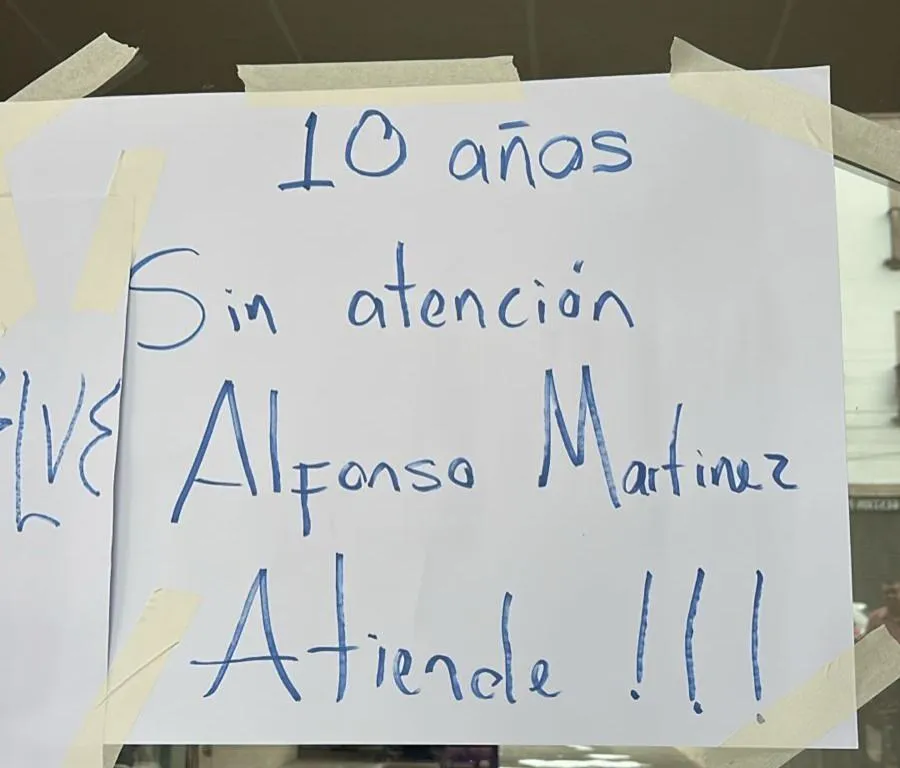 10 años
Sin atención
ELVE
Alfonso Martinez
Atiende !!!